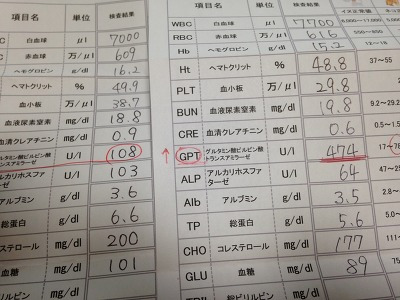 項目名 単位 検査結果
白血球 μl 7000
赤血球 万/μl 609
ヘモグロビン g/dl 16.2
ヘマトクリット % 49.9
血小板 万/μl 38.7
血液尿素窒素 mg/dl 18.8
血清クレアチニン mg/dl 0.9
グルタミン酸ピルビン酸トランスアミラーゼ U/l 108
アルカリホスファターゼ U/l 103
アルブミン g/dl 3.6
総蛋白 g/dl 6.6
コレステロール mg/dl 200
血糖 mg/dl 101
項目名 単位 検査結果
WBC 白血球 μl 7700
RBC 赤血球 万/μl 616
Hb ヘモグロビン g/dl 15.2
Ht ヘマトクリット % 48.8
PLT 血小板 万/μl 29.8
BUN 血液尿素窒素 mg/dl 19.8
CRE 血清クレアチニン mg/dl 0.6
↑ GPT グルタミン酸ピルビン酸
トランスアミラーゼ U/l 474
ALP アルカリホスファ
ターゼ U/l 64
Alb アルブミン g/dl 3.5
TP 総蛋白 g/dl 5.6
CHO コレステロール mg/dl 177
GLU 血糖 mg/dl 89